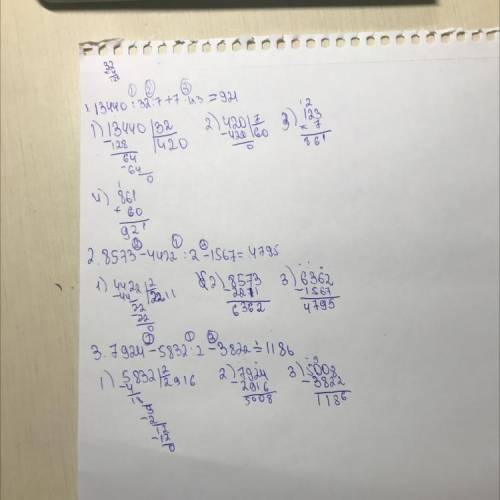 1. 13440 : 32 : 7 + 7 · 123 = 921
1) 13440 | 32
128 | 420
64
- 64
0
2) 420 | 7
- 420 | 60
0
3) 123
× 7
861
4) 861
+ 60
921
2. 8573 - 4422 : 2 - 1567 = 4795
1) 4422 | 2
- 44 | 2211
22
- 22
0
2) 8573
2211
6362
3) 6362
- 1567
4795
3. 7924 - 5832 : 2 - 3822 = 1186
1) 5832 | 2
- 4 | 2916
18
0
2) 7924
- 2916
5008
3) 5008
- 3822
1186